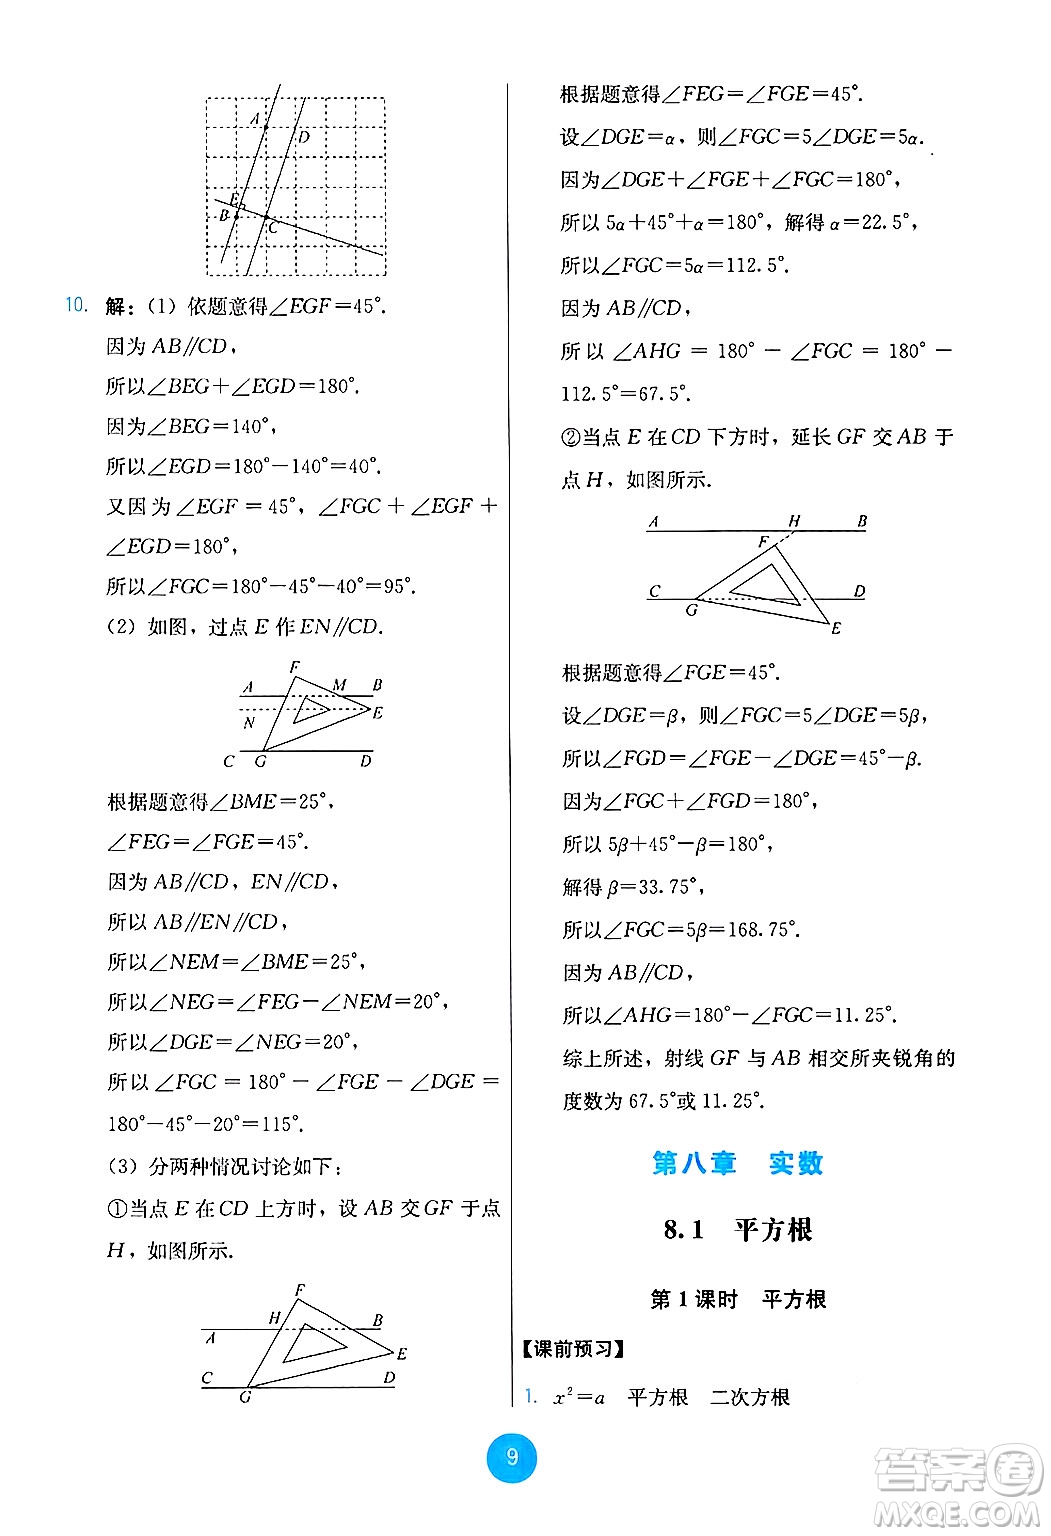 A
D
E
B
C
10. 解：（1）依题意得∠EGF＝45°.
因为 AB∥CD，
所以∠BEG＋∠EGD＝180°.
因为∠BEG＝140°，
所以∠EGD＝180°－140°＝40°.
又因为∠EGF＝45°，∠FGC＋∠EGF＋
∠EGD＝180°，
所以∠FGC＝180°－45°－40°＝95°.
（2）如图，过点 E 作 EN∥CD.
F
A M B
N E
C G D
根据题意得∠BME＝25°，
∠FEG＝∠FGE＝45°.
因为 AB∥CD，EN∥CD，
所以 AB∥EN∥CD，
所以∠NEM＝∠BME＝25°，
所以∠NEG＝∠FEG－∠NEM＝20°，
所以∠DGE＝∠NEG＝20°，
所以∠FGC＝180°－∠FGE－∠DGE＝
180°－45°－20°＝115°.
（3）分两种情况讨论如下：
①当点 E 在 CD 上方时，设 AB 交 GF 于点
H，如图所示.
F
H B
A
E
C D
G
根据题意得∠FEG＝∠FGE＝45°.
设∠DGE＝α，则∠FGC＝5∠DGE＝5α.
因为∠DGE＋∠FGE＋∠FGC＝180°，
所以 5α＋45°＋α＝180°，解得 α＝22.5°，
所以∠FGC＝5α＝112.5°.
因为 AB∥CD，
所以∠AHG＝180°－∠FGC＝180°－
112.5°＝67.5°.
②当点 E 在 CD 下方时，延长 GF 交 AB 于
点 H，如图所示.
A H B
F
C D
G
E
根据题意得∠FGE＝45°.
设∠DGE＝β，则∠FGC＝5∠DGE＝5β，
所以∠FGD＝∠FGE－∠DGE＝45°－β.
因为∠FGC＋∠FGD＝180°，
所以 5β＋45°－β＝180°，
解得 β＝33.75°，
所以∠FGC＝5β＝168.75°.
因为 AB∥CD，
所以∠AHG＝180°－∠FGC＝11.25°.
综上所述，射线 GF 与 AB 相交所夹锐角的
度数为 67.5°或 11.25°.
第八章 实数
8.1 平方根
第 1 课时 平方根
【课前预习】
1. x²＝a 平方根 二次方根
9
答案圈
MXQE.COM